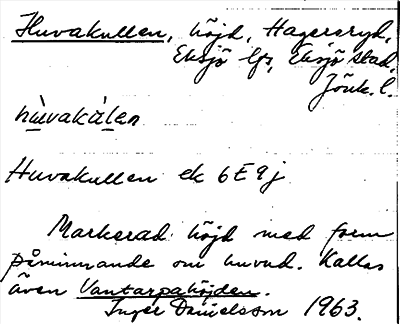 Huvakullen, höjd, Hagersryd,
Eksjö lfs, Eksjö stad,
Jönk. l.
hùvakùlen
Huvakullen ek 6E9j
Markerad höjd med form
påminnande om huvud. Kallas
även Vantarpahöjden.
Inger Danielsson 1963.